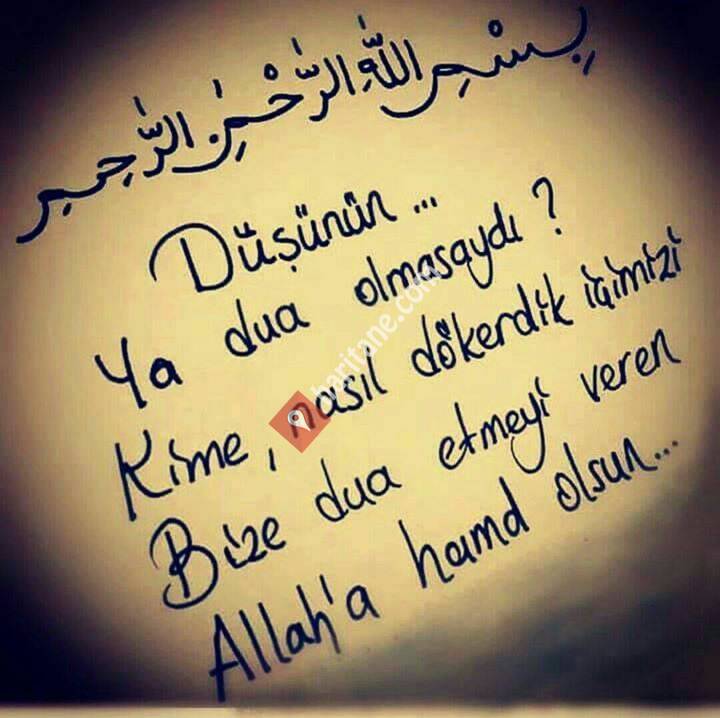 بِسْمِ اللّٰهِ الرَّحْمٰنِ الرَّحِيمِ
Düşünün...
Ya dua olmasaydı?
Kime, nasıl dökerdik içimizi
Bize dua etmeyi veren
Allah'a hamd olsun...
haritane.com